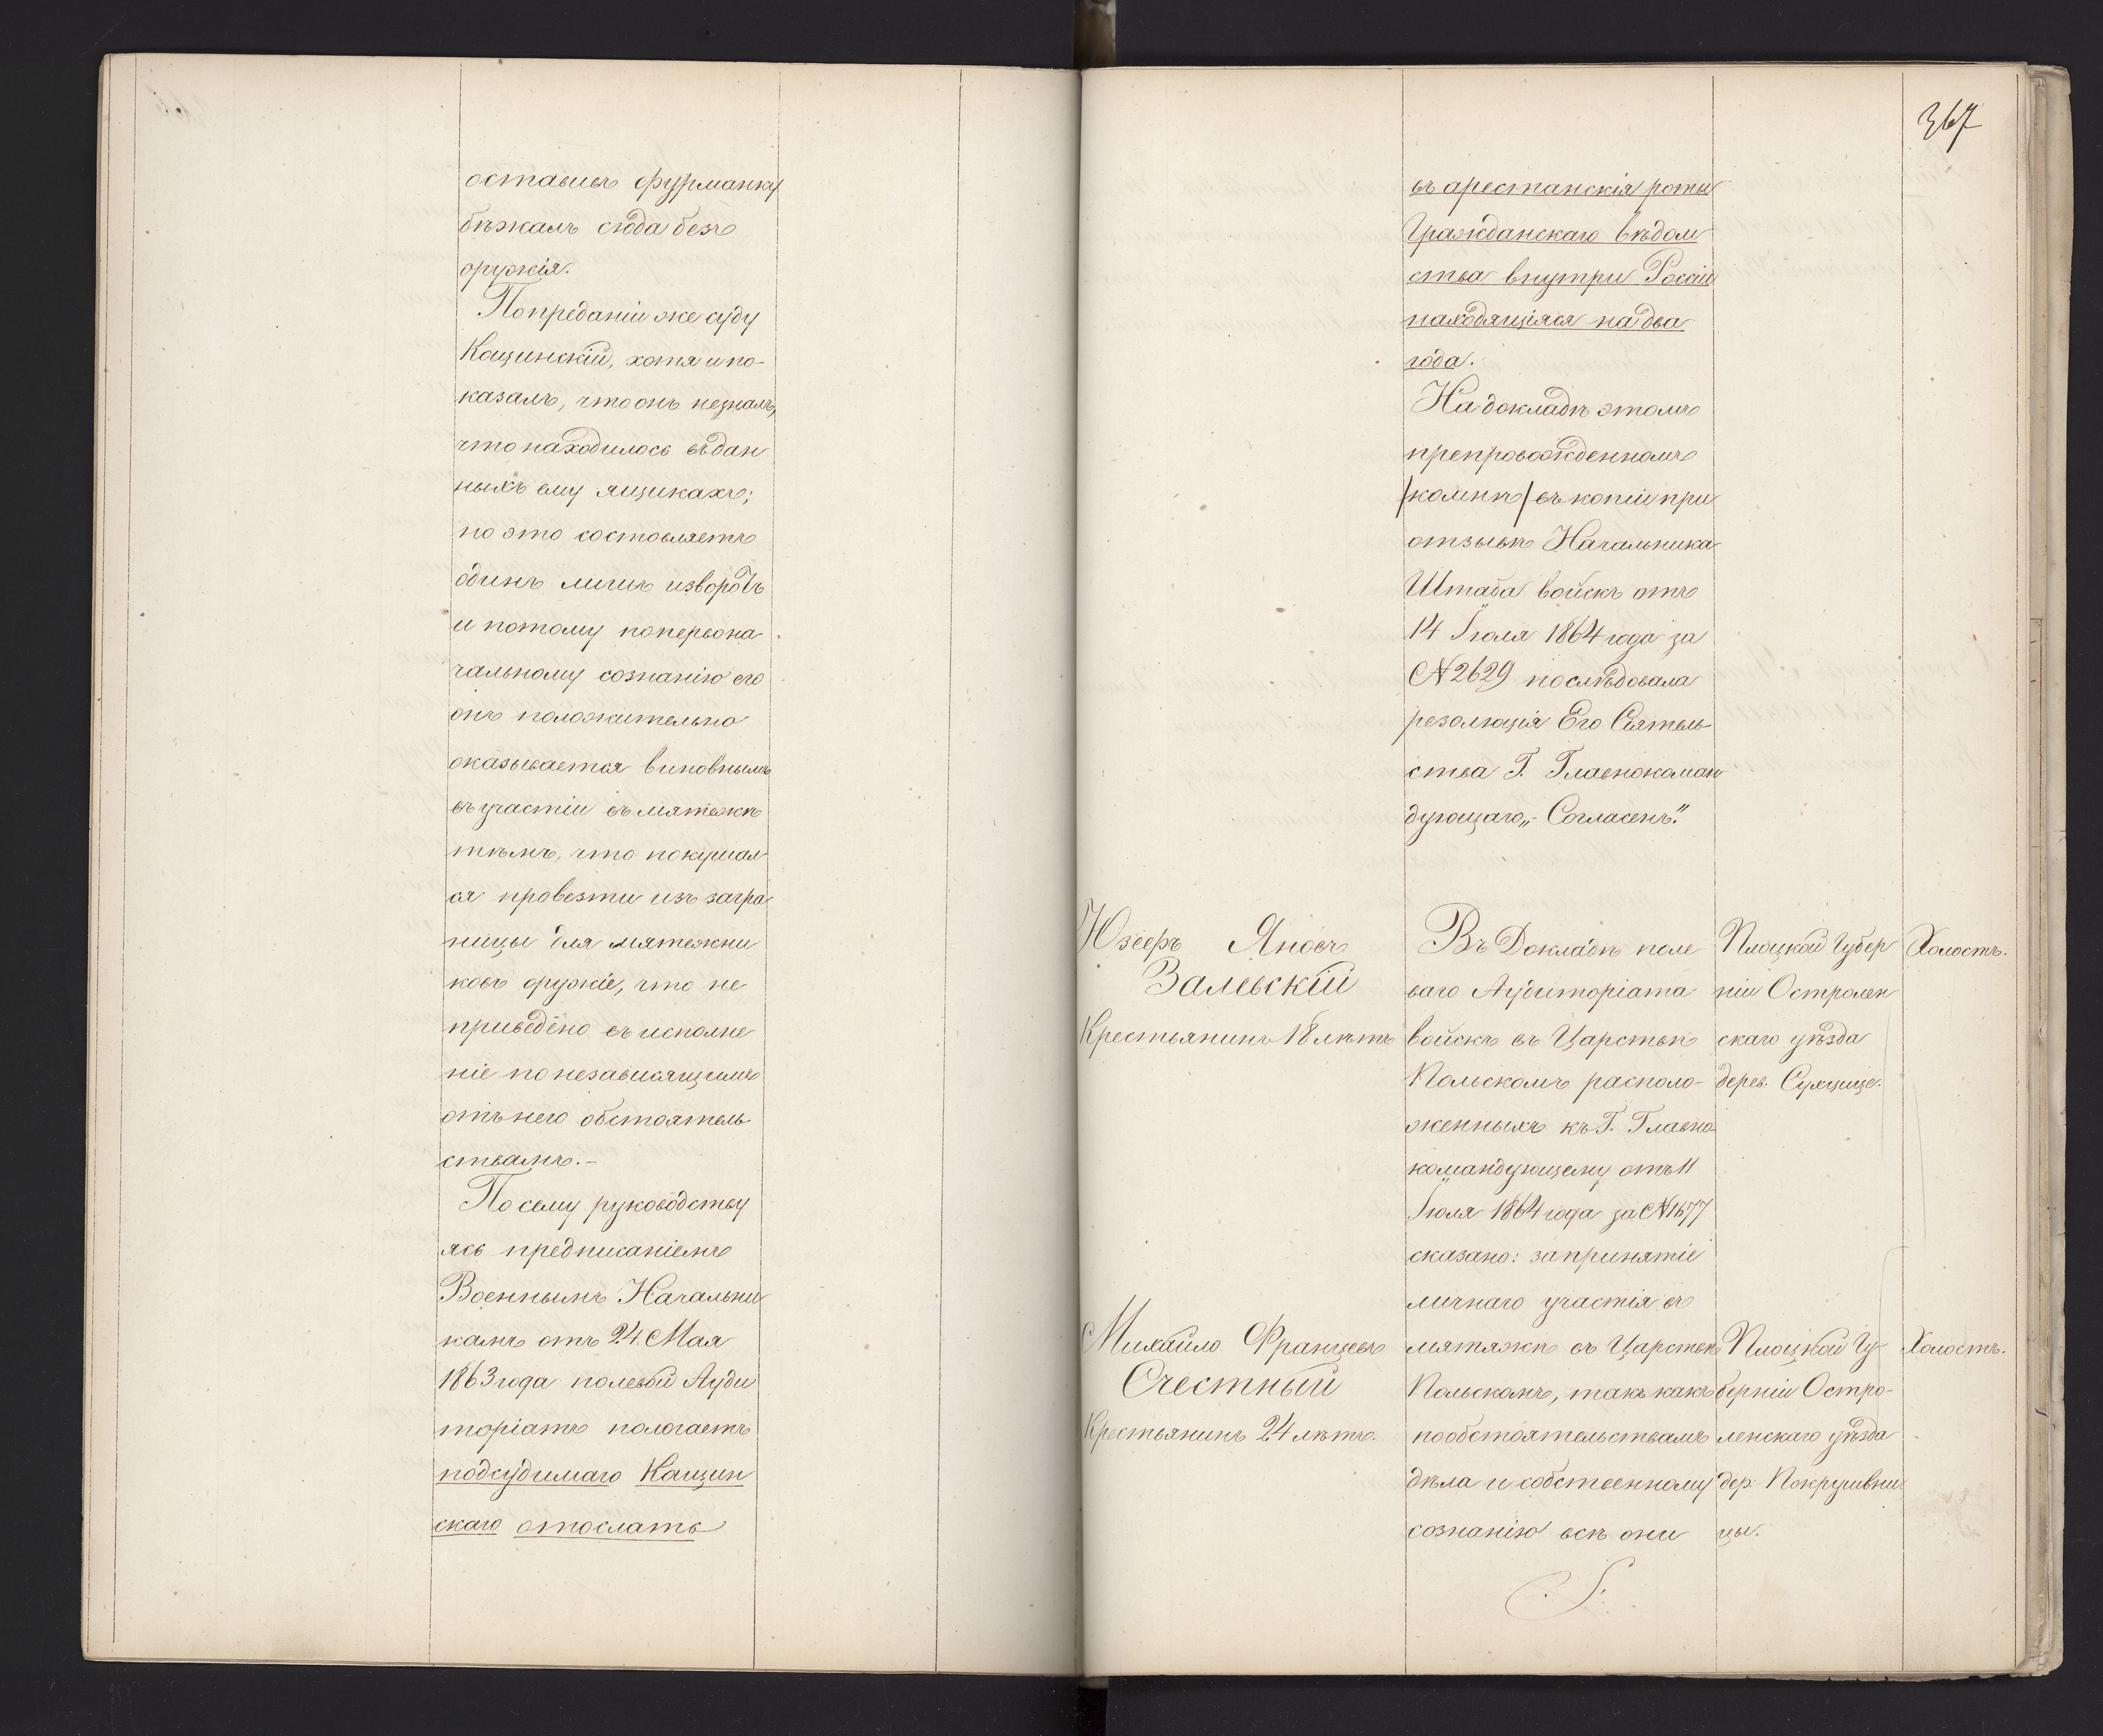 оставивъ фурманку
бѣжалъ сюда безъ
оружія.
По преданіи же суду
Кощинскій, хотя и по-
казалъ, что онъ незналъ,
что находилось въ дан
ныхъ ему ящикахъ;
но это состовляетъ
одинъ лишь изворотъ
и потому по первона
чальному сознанію его
онъ положительно
оказывается виновнымъ
въ участіи въ мятежѣ
тѣмъ, что покушал
ся провезти изъ загра
ницы для мятежни
ковъ оружіе, что не
приведено въ исполне
ніе по независящимъ
отъ него обстоятель
ствамъ.-
По сему руководству
ясь предписаніемъ
Военнымъ Начальни
камъ отъ 24 Мая
1863 года полевой Ауди
торіатъ пологаетъ
подсудимаго Кощин
скаго отослать
367
въ арестанскія роты
Гражданскаго вѣдом
ства внутри Россіи
находящіяся на два
года.
На докладѣ этомъ
препровожденномъ
/комнѣ/ въ копіи при
отзывѣ Начальника
Штаба войскъ отъ
14 Іюля 1864 года за
№ 2629 послѣдовала
резолюція Его Сіятель
ства Г. Главнокоман
дующаго „Согласенъ."
Юзефъ Яновъ
Залевскій
Крестьянинъ 18 лѣтъ
Въ Докладѣ поле
ваго Аудиторіата
войскъ въ Царствѣ
Польскомъ располо-
женныхъ къ Г. Главно
командующему отъ 11
Іюля 1864 года за № 1677
сказано: за принятіе
личнаго участія въ
мятяжѣ въ Царствѣ
Польскомъ, такъ какъ
по обстоятельствамъ
дѣла и собственному
сознанію всѣ они
Плоцкой Губер
ніи Остролен
скаго уѣзда
дерев. Сухцице.
Холостъ.
Михайло Францевъ
Счестный
Крестьянинъ 24 лѣтъ.
Плоцкой Гу
берніи Остро-
ленскаго уѣзда
дер. Покрушвни
цы.
Холостъ.